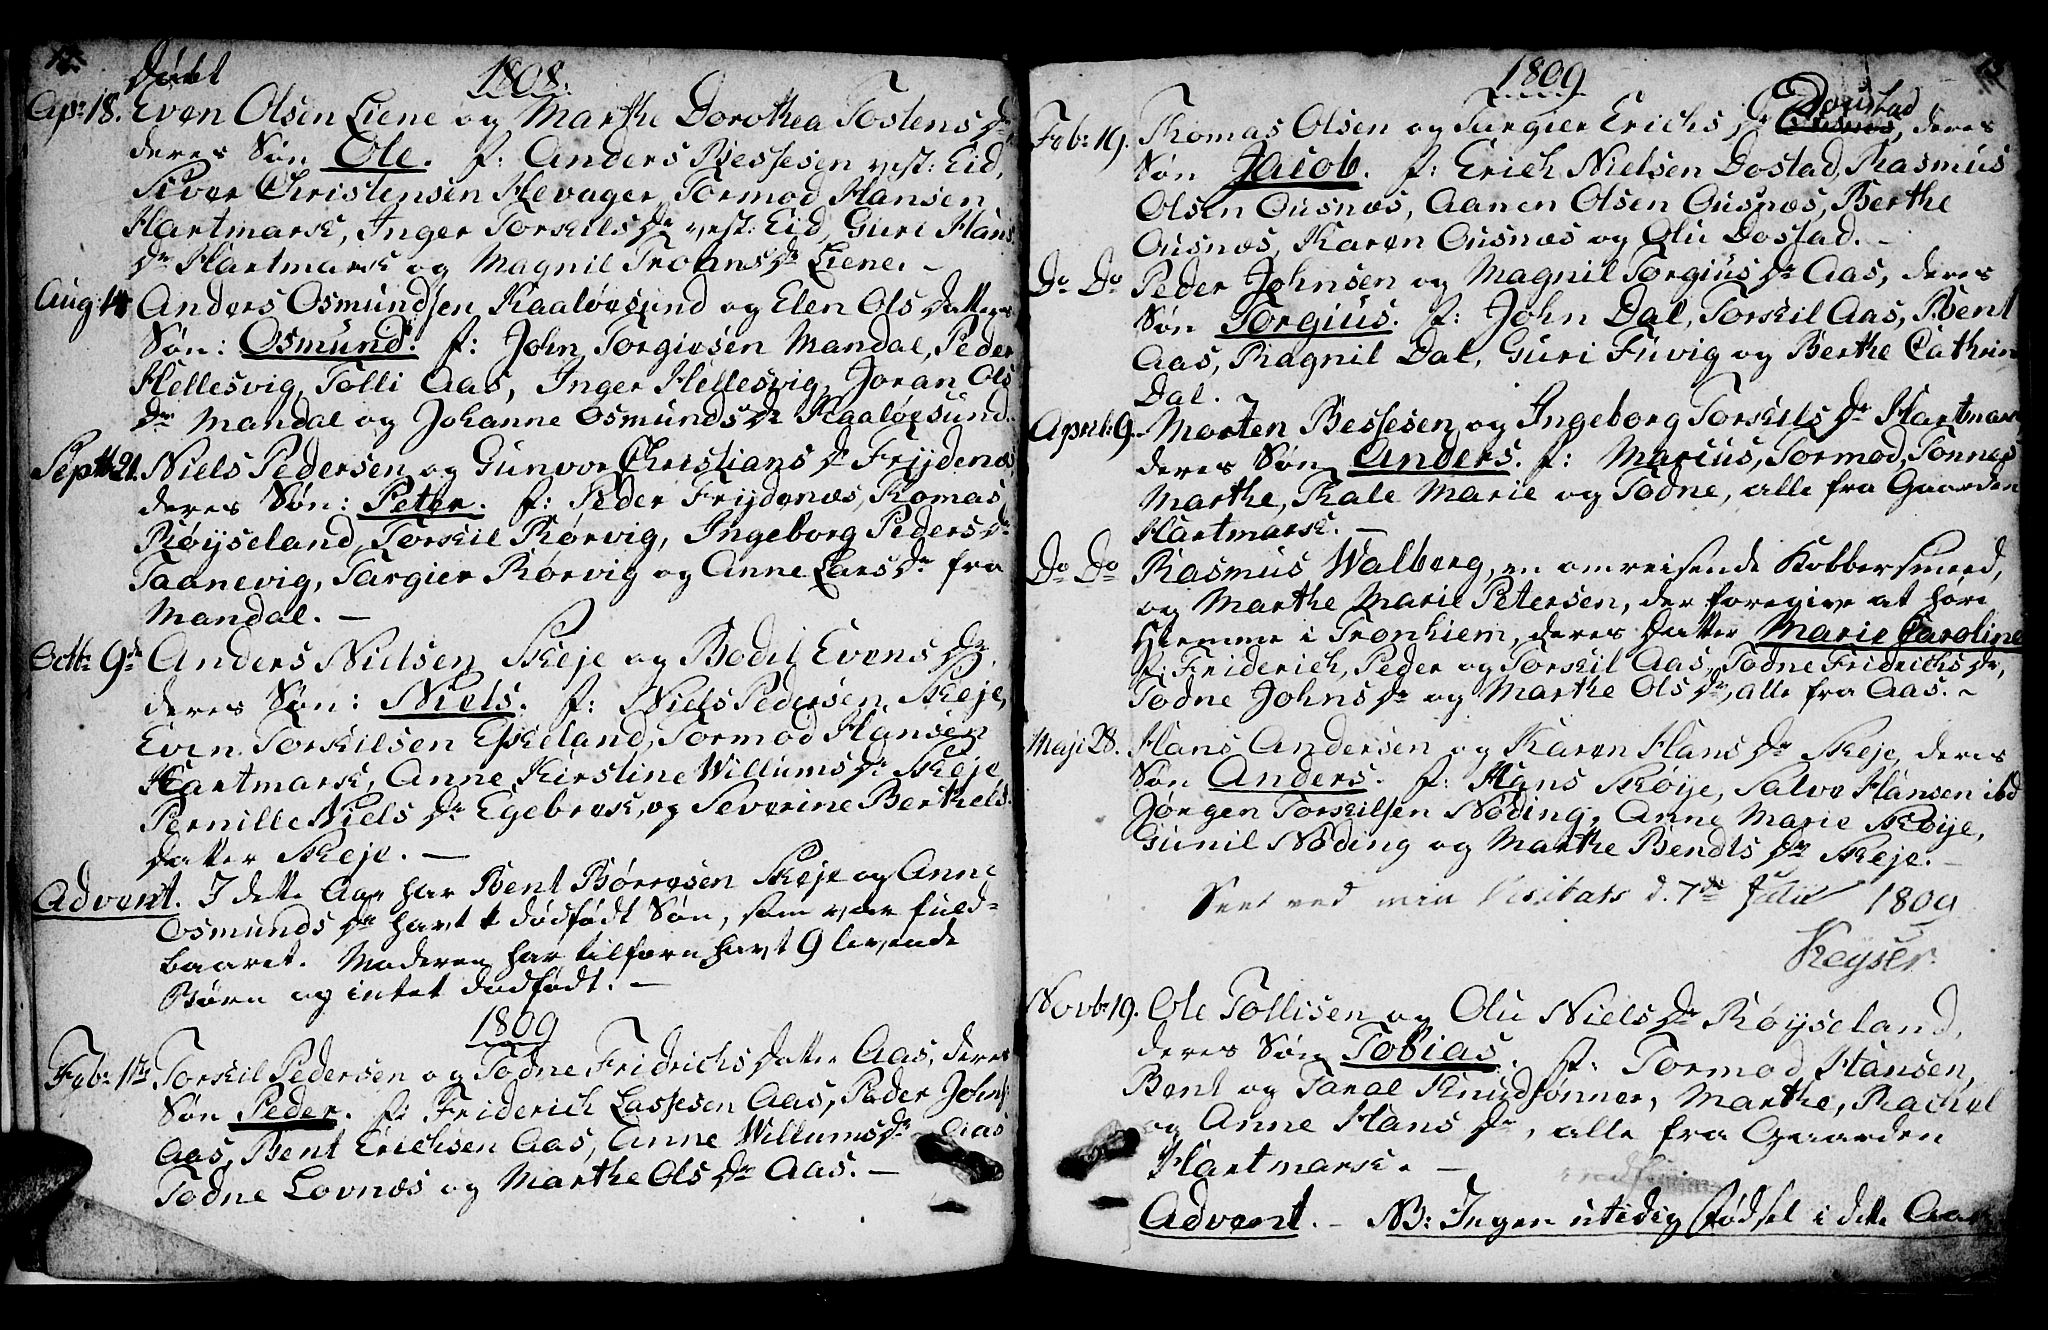 Døbt 1808.
Ap: 18. Even Olsen Liene og Marthe Dorothea Tostens Dr
deres Søn Ole. f: Anders Bessesen vest: Eid,
Siver Christensen Hevager, Tormod Hansen
Hartmark, Inger Torkils Dr vest: Eid, Guri Hans
Dr Hartmark og Magnil Troans Dr Liene. –
Aug: 14 Anders Osmundsen Kaaløesund og Elen Ols Datter
Søn: Osmund. f: John Torgiesen Mandal, Peder
Hellesvig, Tolli Aas, Inger Hellesvig, Joran Ols
Dr Mandal og Johanne Osmunds Dr Kaaløesund.
Septb 21. Niels Pedersen og Gunvor Christians Dr Frydenæs,
deres Søn: Peter. f: Peder Frijdenæs, Tomas
Røyseland, Torkil Rørvig, Ingeborg Peders Dr
Taanevig, Targier Rørvig og Anne Lars Dr fra
Mandal. –
Octb: 9de Anders Nielsen Skeje og Bodil Evens Dr,
deres Søn: Niels. f: Niels Pedersen Skeje,
Even Torkilsen Eskeland, Tormod Hansen
Hartmark, Anne Kirstine Willums Dr Skeje,
Pernille Niels Dr Egebrek, og Severine Berthels
Datter Skeje. –
Advent. I dette Aar har Bent Børresen Skeje og Anne
Osmunds Dr havt 1 dødfødt Søn, som var fuld-
baaret. Moderen har tilforn havt 9 levende
Børn og intet dødfødt. –
1809
Feb: 12te Torkil Pedersen og Todne Fridrichs Datter Aas, deres
Søn Peder. f: Friderich Lassesen Aas, Peder Johns:
Aas, Bent Erichsen Aas, Anne Willums Dr Aas
Todne Lovnæs og Marthe Ols Dr Aas. –
1809
Feb: 19. Thomas Olsen og Turgier Erichs Dr Dousstad, deres
Søn Jacob. f: Erich Nielsen Dostad, Rasmus
Olsen Ousnæs, Aanen Olsen Ousnæs, Berthe
Ousnæs, Karen Ousnæs og Olu Dostad. –
Do Do Peder Johnsen og Magnil Torgius Dr Aas, deres
Søn Torgius. f: John Dal, Torkil Aas, Bent
Aas, Ragnil Dal, Guri Fuvig og Berthe Cathrin
Dal. –
April: 9. Morten Bessesen og Ingeborg Torkils Dr Hartmark
deres Søn Anders. f: Marcus, Tormod, Tonnes
Marthe, Kale Marie og Todne, alle fra Gaarden
Hartmark. –
Do Do Rasmus Walberg, en omreisende Kobbersmeed,
og Marthe Marie Petersen, der foregive at høre
hiemme i Tronhiem, deres Datter Marie Caroline
f: Friderich, Peder og Torkil Aas, Todne Fridrichs Dr,
Todne Johns Dr og Marthe Ols Dr, alle fra Aas. –
Maji 28. Hans Andersen og Karen Hans Dr Skeje, deres
Søn Anders. f: Hans Skøije, Salve Hansen ibd
Jørgen Torkilsen Nøding, Anne Marie Skøije,
Gunil Nøding og Marthe Bendts Dr Skeje. –
Seet ved min Visitats d. 7de Julii 1809
Keyser.
Novb: 19. Ole Tollisen og Olu Niels Dr Røyseland,
deres Søn Tobias. f: Tormod Hansen,
Bent og Taral Knudsønner, Marthe, Rachel
og Anne Hans Dr, alle fra Gaarden
Hartmark. –
Advent. – NB: Ingen utidig fødsel i dette Aar